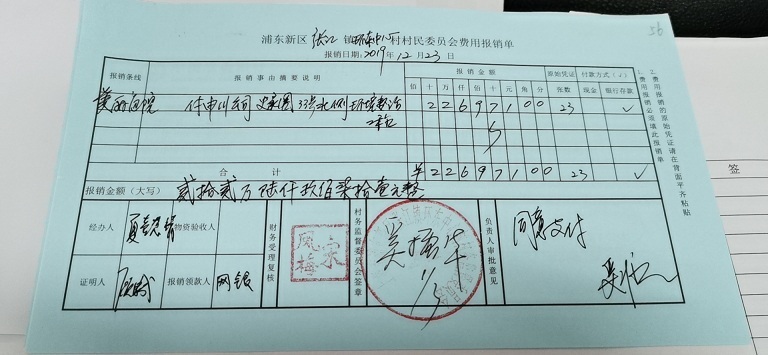 浦东新区 张江 镇 环东中心 村村民委员会费用报销单
报销日期:2019年12月23日
报销条线 报销事由摘要说明 报销金额 原始凭证 付款方式(√)
佰 十 万 仟 佰 十 元 角 分 张数 现金 银行存款
美丽庭院 33号北侧环境整治 2 2 6 9 7 1 0 0 23 √
合 计 ¥ 2 2 6 9 7 1 0 0 23 √
报销金额(大写) 贰拾贰万陆仟玖佰柒拾壹元整
经办人 物资验收人 财务受理复核 凤梅 宗 村务监督委员会签章 1/3 负责人审批意见 同意支付
证明人 报销领款人 网银
1.费用报销必须填此报销单
2.费用报销的原始凭证请在背面平齐粘贴
签